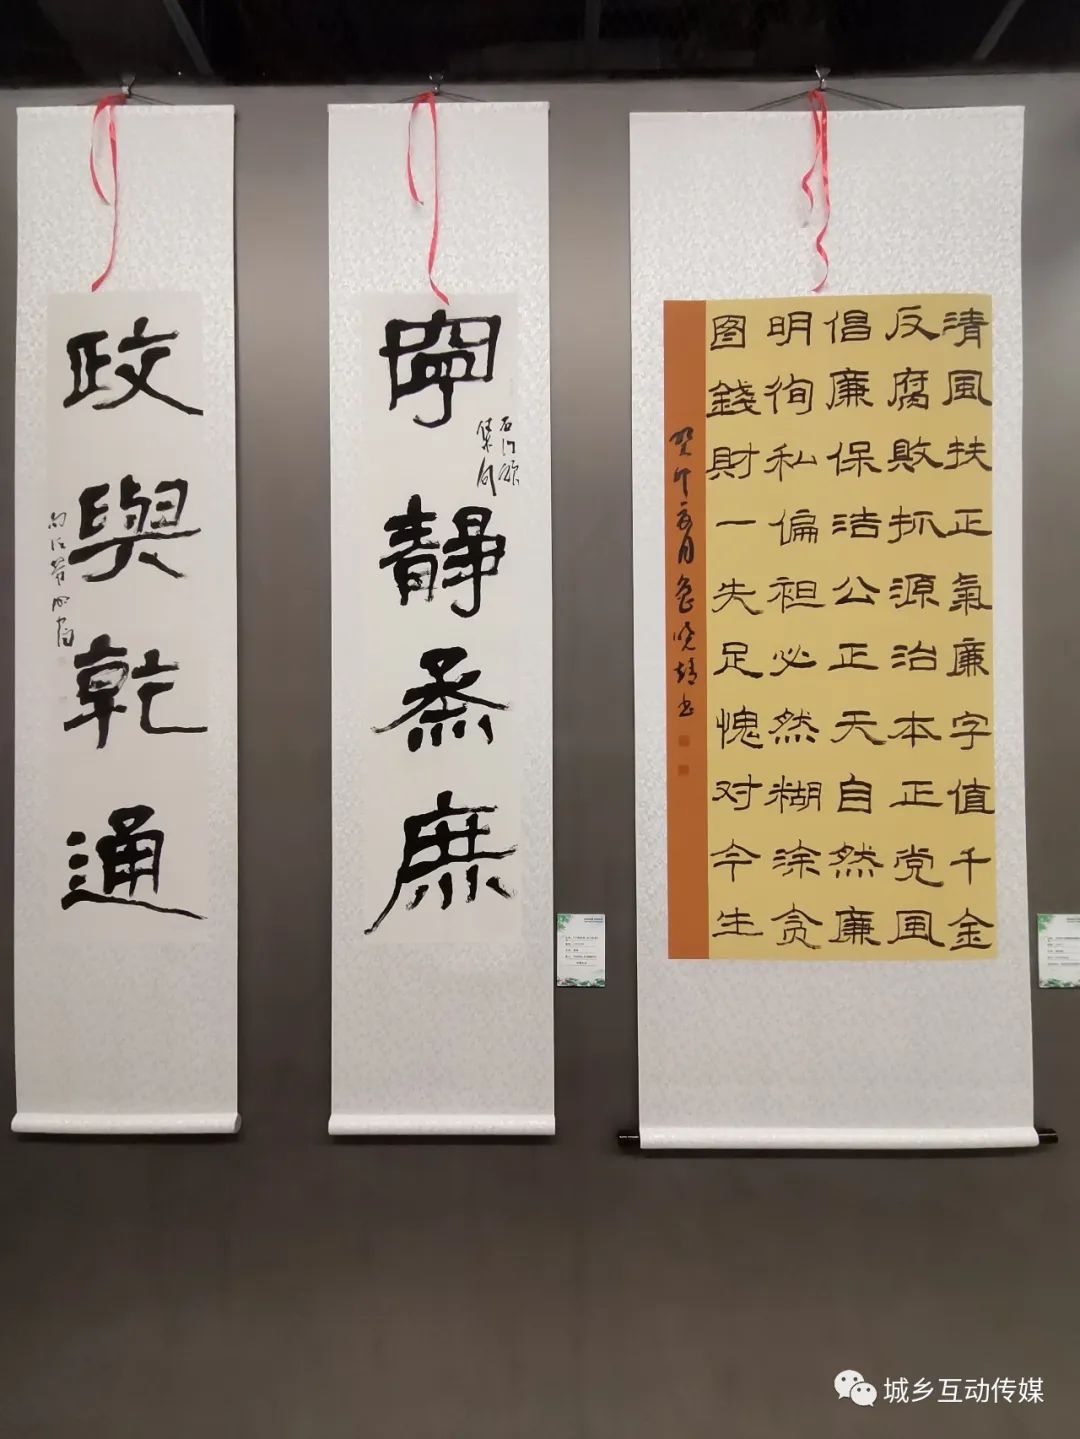 清風扶正氣廉字值千金
反腐敗抓源治本正党風
倡廉保洁公正天自然廉
明徇私偏袒必然糊涂贪
图錢財一失足愧对今生
癸卯 月 晓靖书
寧靜烝庶
石门颂
集句
政與乾通
城乡互动传媒